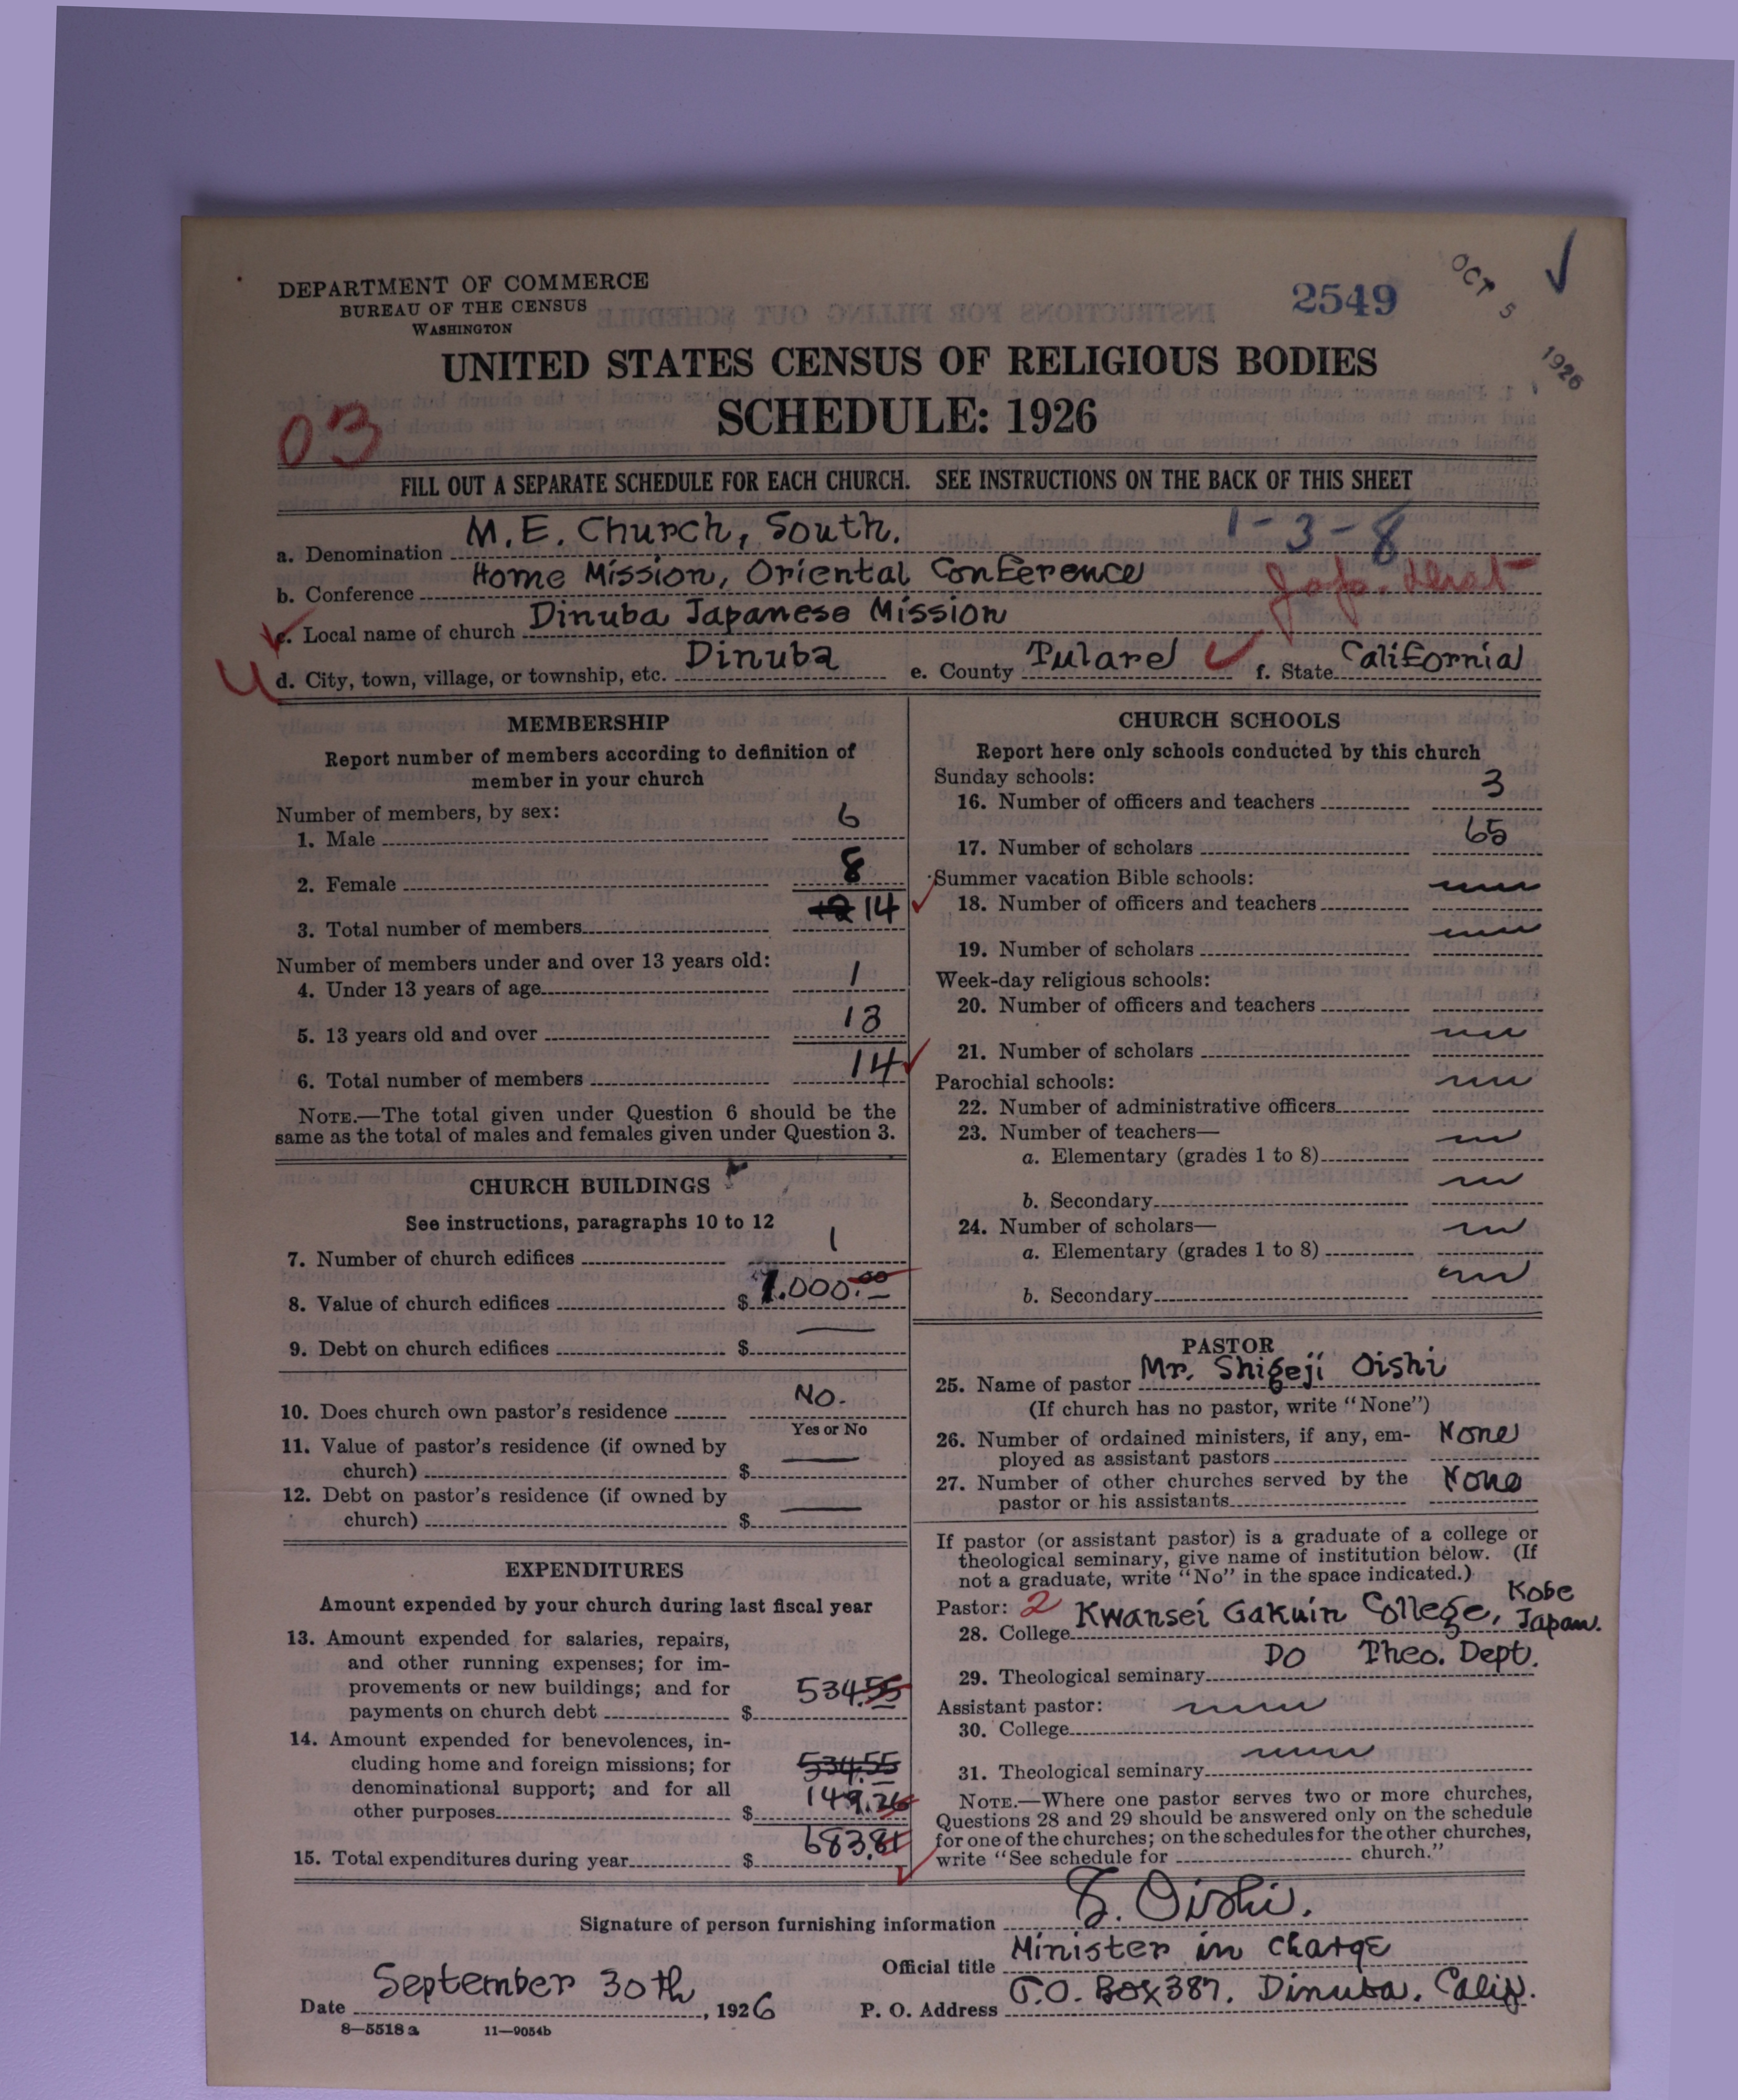 DEPARTMENT OF COMMERCE
BUREAU OF THE CENSUS
WASHINGTON
2549
OCT 5 1926
UNITED STATES CENSUS OF RELIGIOUS BODIES
SCHEDULE: 1926
03
FILL OUT A SEPARATE SCHEDULE FOR EACH CHURCH. SEE INSTRUCTIONS ON THE BACK OF THIS SHEET
a. Denomination M.E. Church, South. 1-3-8
b. Conference Home Mission, Oriental Conference
c. Local name of church Dinuba Japanese Mission
d. City, town, village, or township, etc. Dinuba e. County Tulare f. State California
MEMBERSHIP
Report number of members according to definition of
member in your church
Number of members, by sex:
1. Male 6
2. Female 8
3. Total number of members 14
Number of members under and over 13 years old:
4. Under 13 years of age 1
5. 13 years old and over 13
6. Total number of members 14
NOTE.—The total given under Question 6 should be the
same as the total of males and females given under Question 3.
CHURCH BUILDINGS
See instructions, paragraphs 10 to 12
7. Number of church edifices 1
8. Value of church edifices $ 1.000.00
9. Debt on church edifices $
10. Does church own pastor's residence No.
Yes or No
11. Value of pastor's residence (if owned by
church) $
12. Debt on pastor's residence (if owned by
church) $
EXPENDITURES
Amount expended by your church during last fiscal year
13. Amount expended for salaries, repairs,
and other running expenses; for im-
provements or new buildings; and for
payments on church debt $ 534.55
14. Amount expended for benevolences, in-
cluding home and foreign missions; for 534.55
denominational support; and for all
other purposes $ 149.26
15. Total expenditures during year $ 683.81
CHURCH SCHOOLS
Report here only schools conducted by this church
Sunday schools:
16. Number of officers and teachers 3
17. Number of scholars 65
Summer vacation Bible schools:
18. Number of officers and teachers
19. Number of scholars
Week-day religious schools:
20. Number of officers and teachers
21. Number of scholars
Parochial schools:
22. Number of administrative officers
23. Number of teachers—
a. Elementary (grades 1 to 8)
b. Secondary
24. Number of scholars—
a. Elementary (grades 1 to 8)
b. Secondary
PASTOR
25. Name of pastor Mr. Shigeji Oishi
(If church has no pastor, write "None")
26. Number of ordained ministers, if any, em-
ployed as assistant pastors None
27. Number of other churches served by the
pastor or his assistants None
If pastor (or assistant pastor) is a graduate of a college or
theological seminary, give name of institution below. (If
not a graduate, write "No" in the space indicated.)
Pastor: 2
28. College Kwansei Gakuin College, Kobe Japan.
29. Theological seminary Do Theo. Dept.
Assistant pastor:
30. College
31. Theological seminary
NOTE.—Where one pastor serves two or more churches,
Questions 28 and 29 should be answered only on the schedule
for one of the churches; on the schedules for the other churches,
write "See schedule for church."
Signature of person furnishing information S. Oishi.
Official title Minister in Charge
Date September 30th, 1926 P. O. Address P.O. Box 387. Dinuba. Calif.
8—5518 a 11—9054b